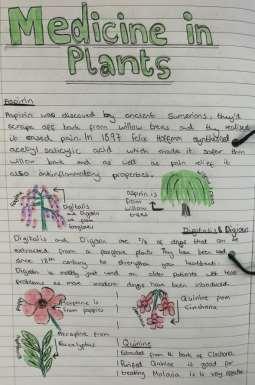 Medicine in
Plants
Aspirin
Aspirin was discovered by ancient Sumerians, they'd
scrape off bark from willow trees and they realised
it eased pain. In 1897 Felix Hoffman synthesised
acetyl salicylic acid which made it safer than
willow bark and as well as pain relief it
also antiinflammatory properties.
Digitalis
and Digoxin
from
foxgloves
Aspirin is
from
willow
trees
Digitalis & Digoxin
Digitalis and Digoxin are of drugs that can be
extracted from a foxglove plant. They have been used
since 18th century to strengthen your heartbeat.
Digoxin is mostly just used on older patients with heart
problems as more modern drugs have been introduced.
Morphine is
from poppies
Quinine from
Cinchona
from
Eucalyptus
Quinine
Extracted from the bark of Cinchona.
Purified Quinine is good for
treating Malaria is is very effective